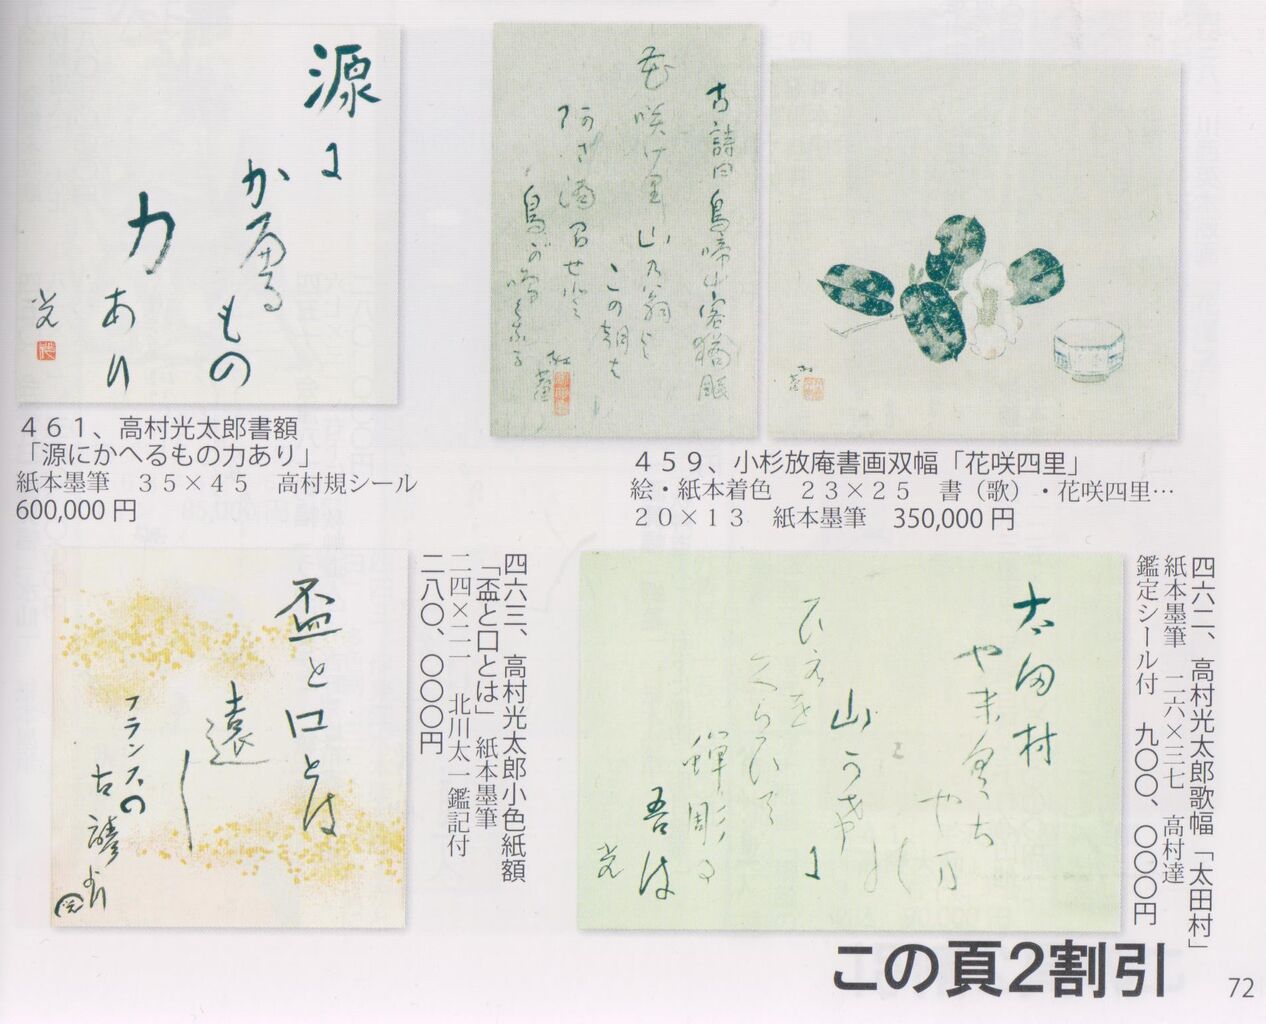 源に
かへる
もの
力
あり
光
４６１、高村光太郎書額
「源にかへるもの力あり」
紙本墨筆　３５×４５　高村規シール
600,000 円
古詩曰鳥啼山客猶眠
花咲
山
この朝も
４５９、小杉放庵書画双幅「花咲四里」
絵・紙本着色　２３×２５　書（歌）・花咲四里…
２０×１３　紙本墨筆　350,000 円
盃と口とは
遠し
フランスの
古諺より
光
四六三、高村光太郎小色紙額
「盃と口とは」　紙本墨筆
二四×二一　北川太一鑑記付
二八〇、〇〇〇円
太田村
やまくち
山
蝉彫る
吾は
光
四六二、高村光太郎歌幅「太田村」
紙本墨筆　二六×三七　高村達
鑑定シール付　九〇〇、〇〇〇円
この頁2割引
72